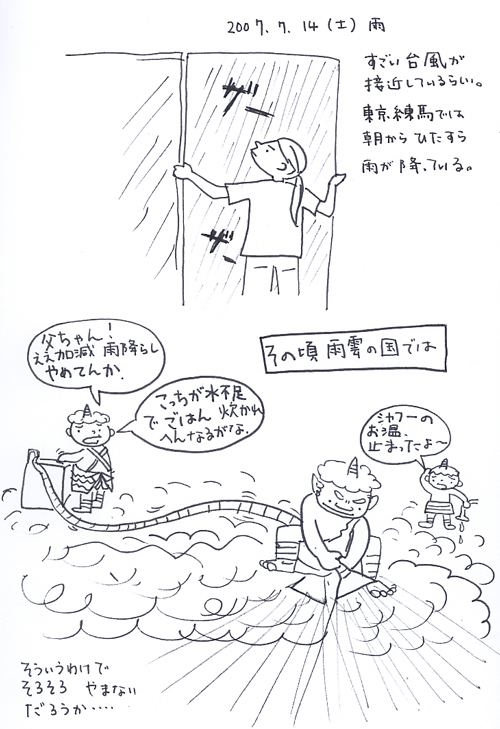 2007. 7. 14 (土) 雨
すごい台風が
接近しているらしい。
東京練馬では
朝から ひたすら
雨が降っている。
ザー
ザー
その頃 雨雲の国では
父ちゃん!
ええ加減 雨降らし
やめてんか.
こっちが水不足
で ごはん 炊かれ
へんなるがな.
シャワーの
お温、
止まったよ〜
そういうわけで
そろそろ やまない
だろうか‥‥